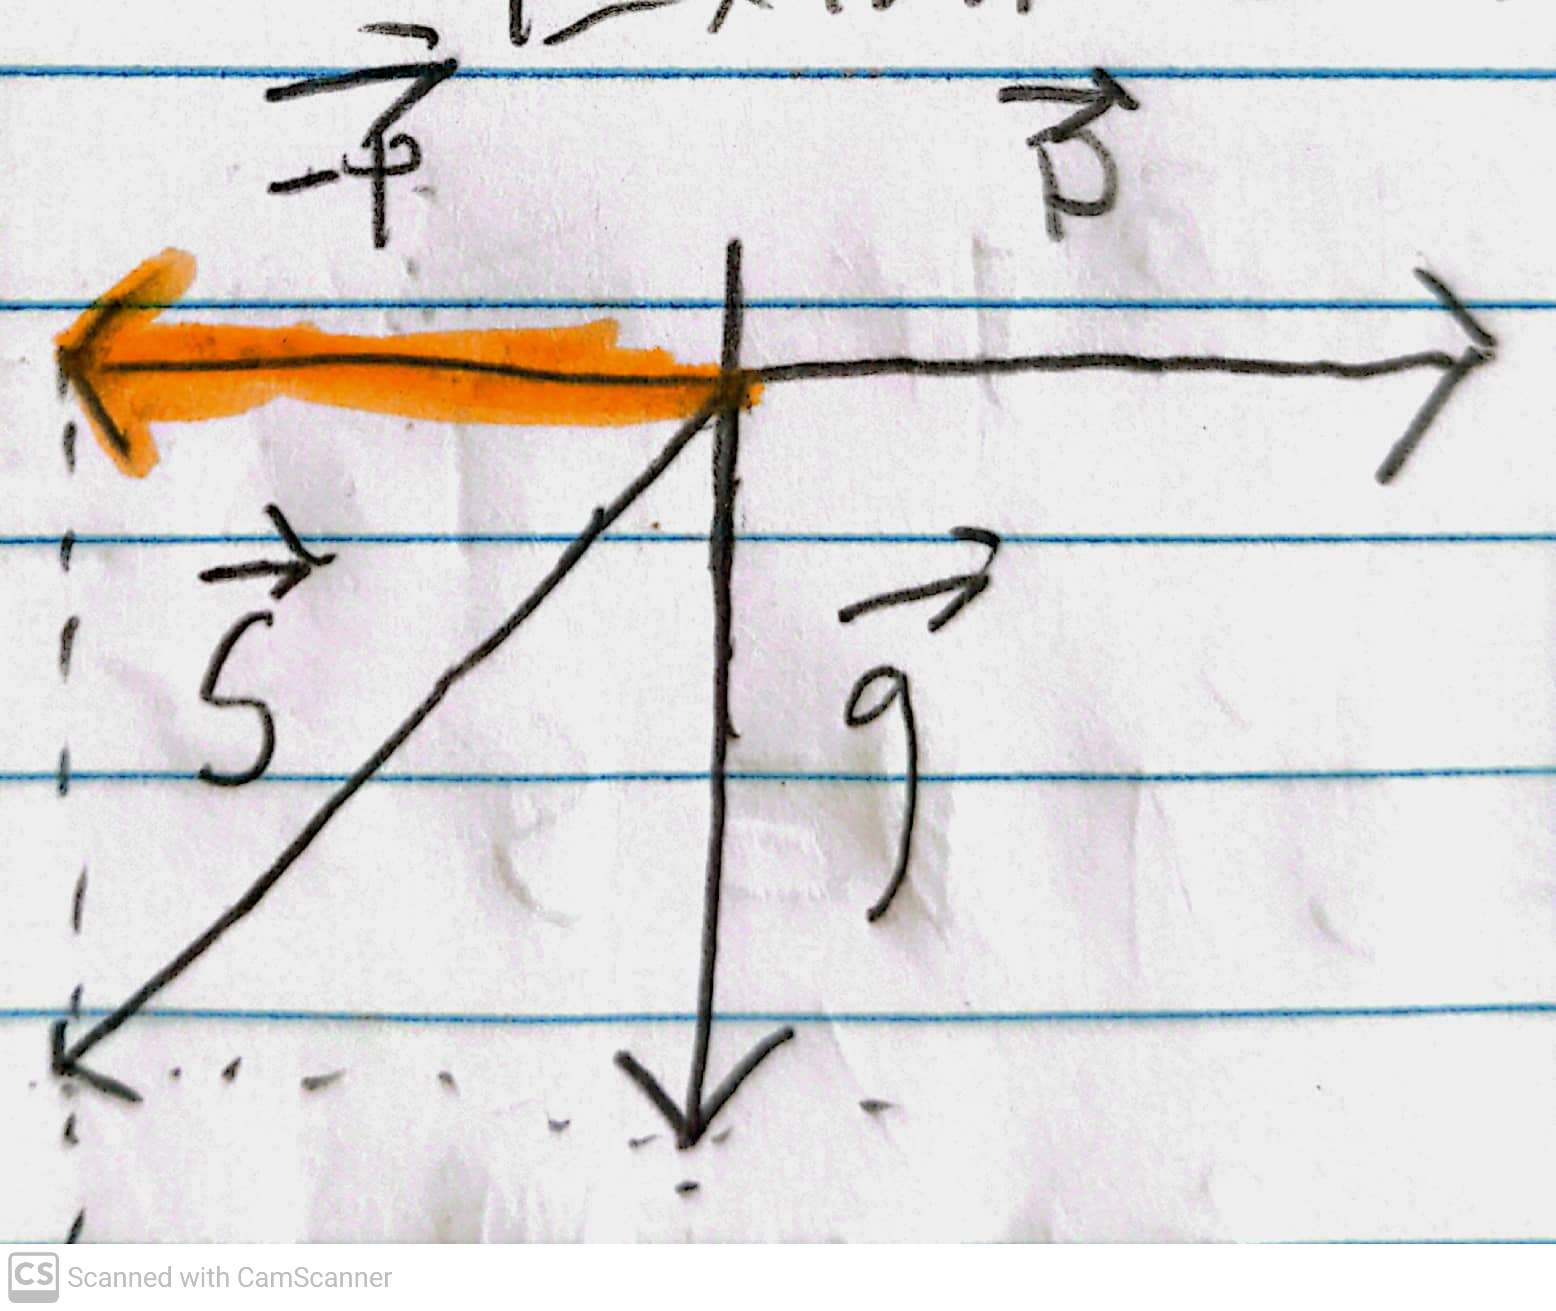 -p
p
S
q
CS Scanned with CamScanner